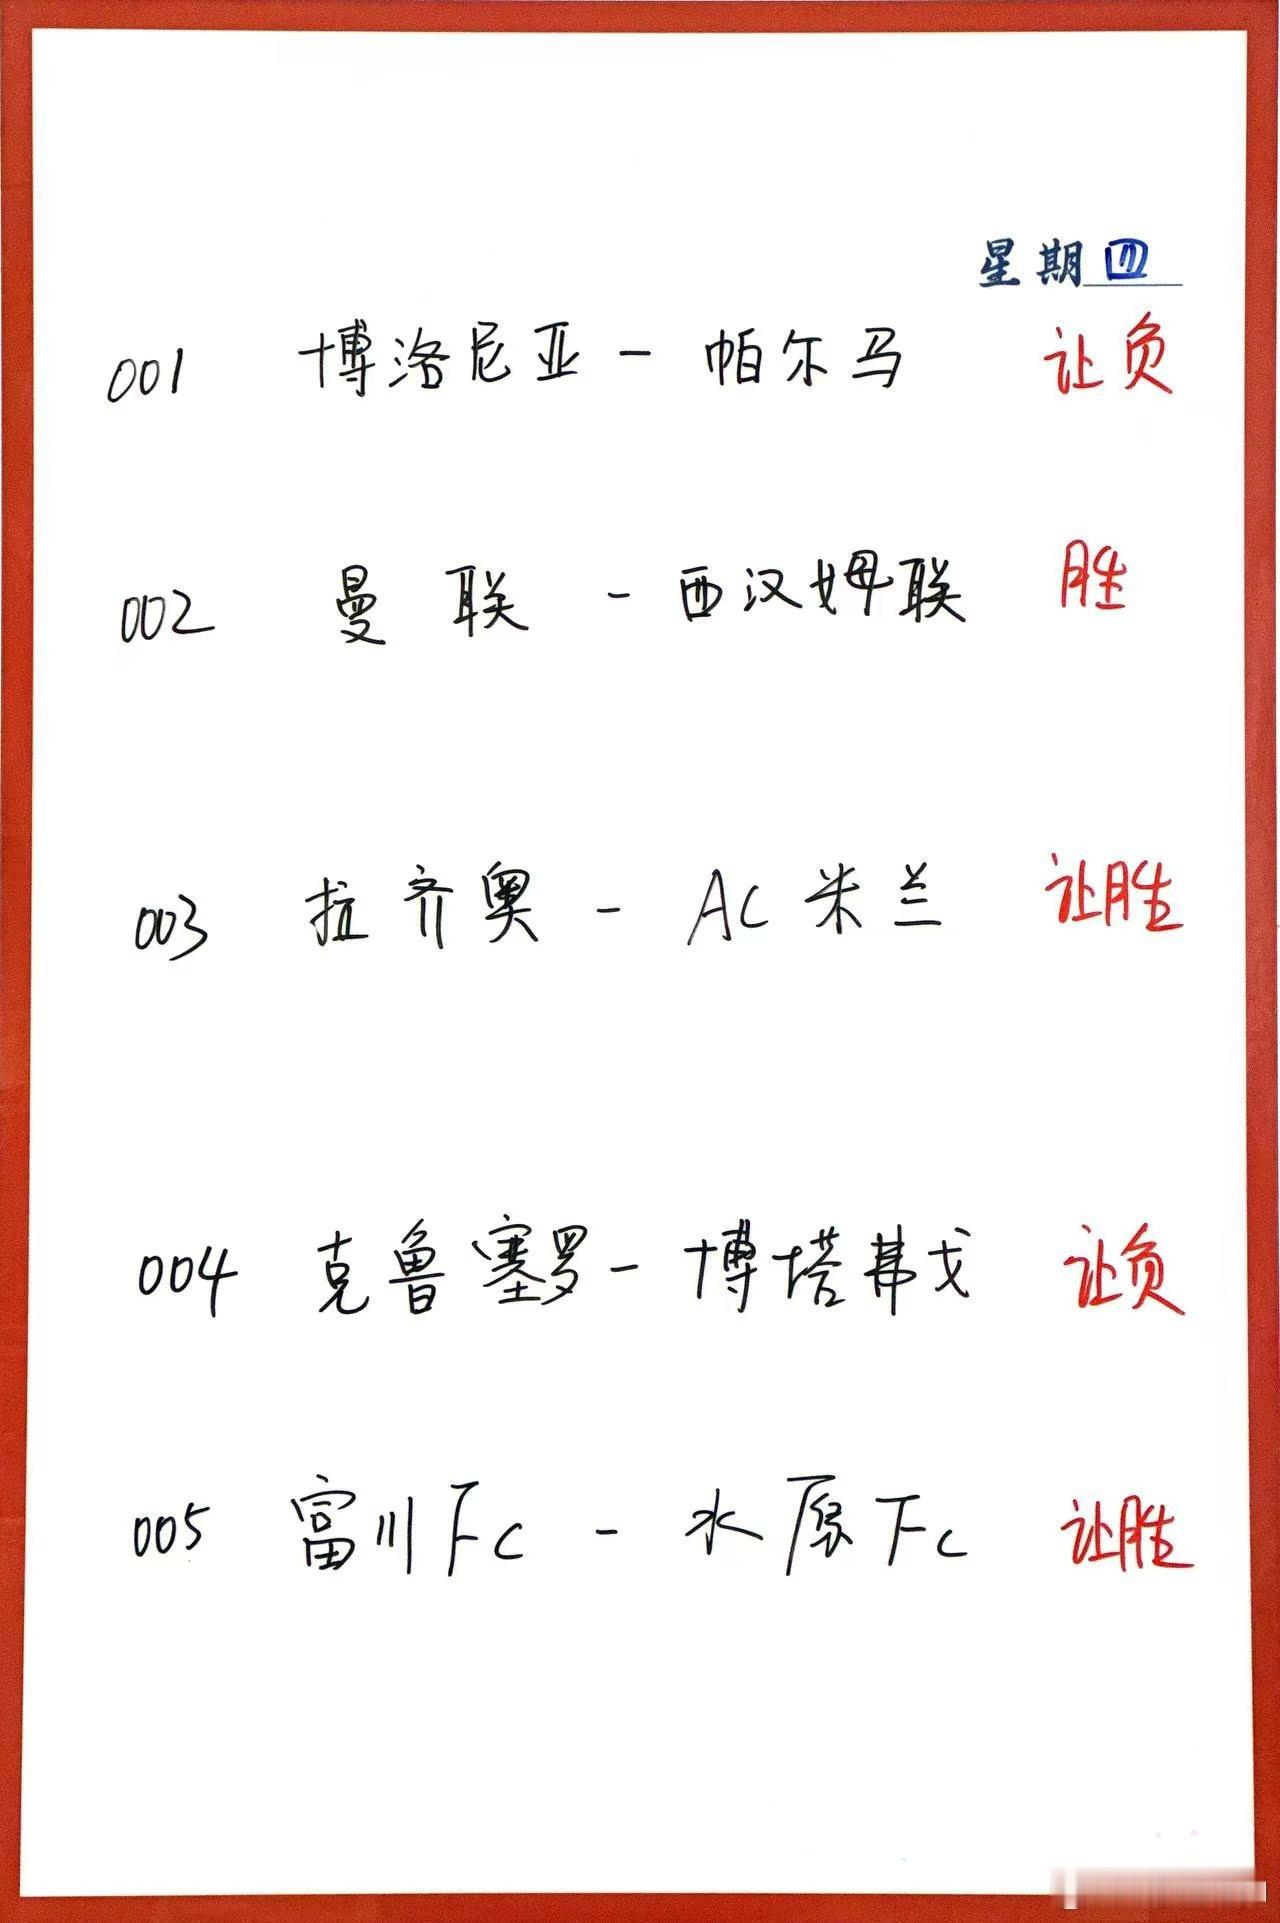 星期四
001 博洛尼亚 - 帕尔马 让负
002 曼联 - 西汉姆联 胜
003 拉齐奥 - AC米兰 让胜
004 克鲁塞罗 - 博塔弗戈 让负
005 富川FC - 水原FC 让胜